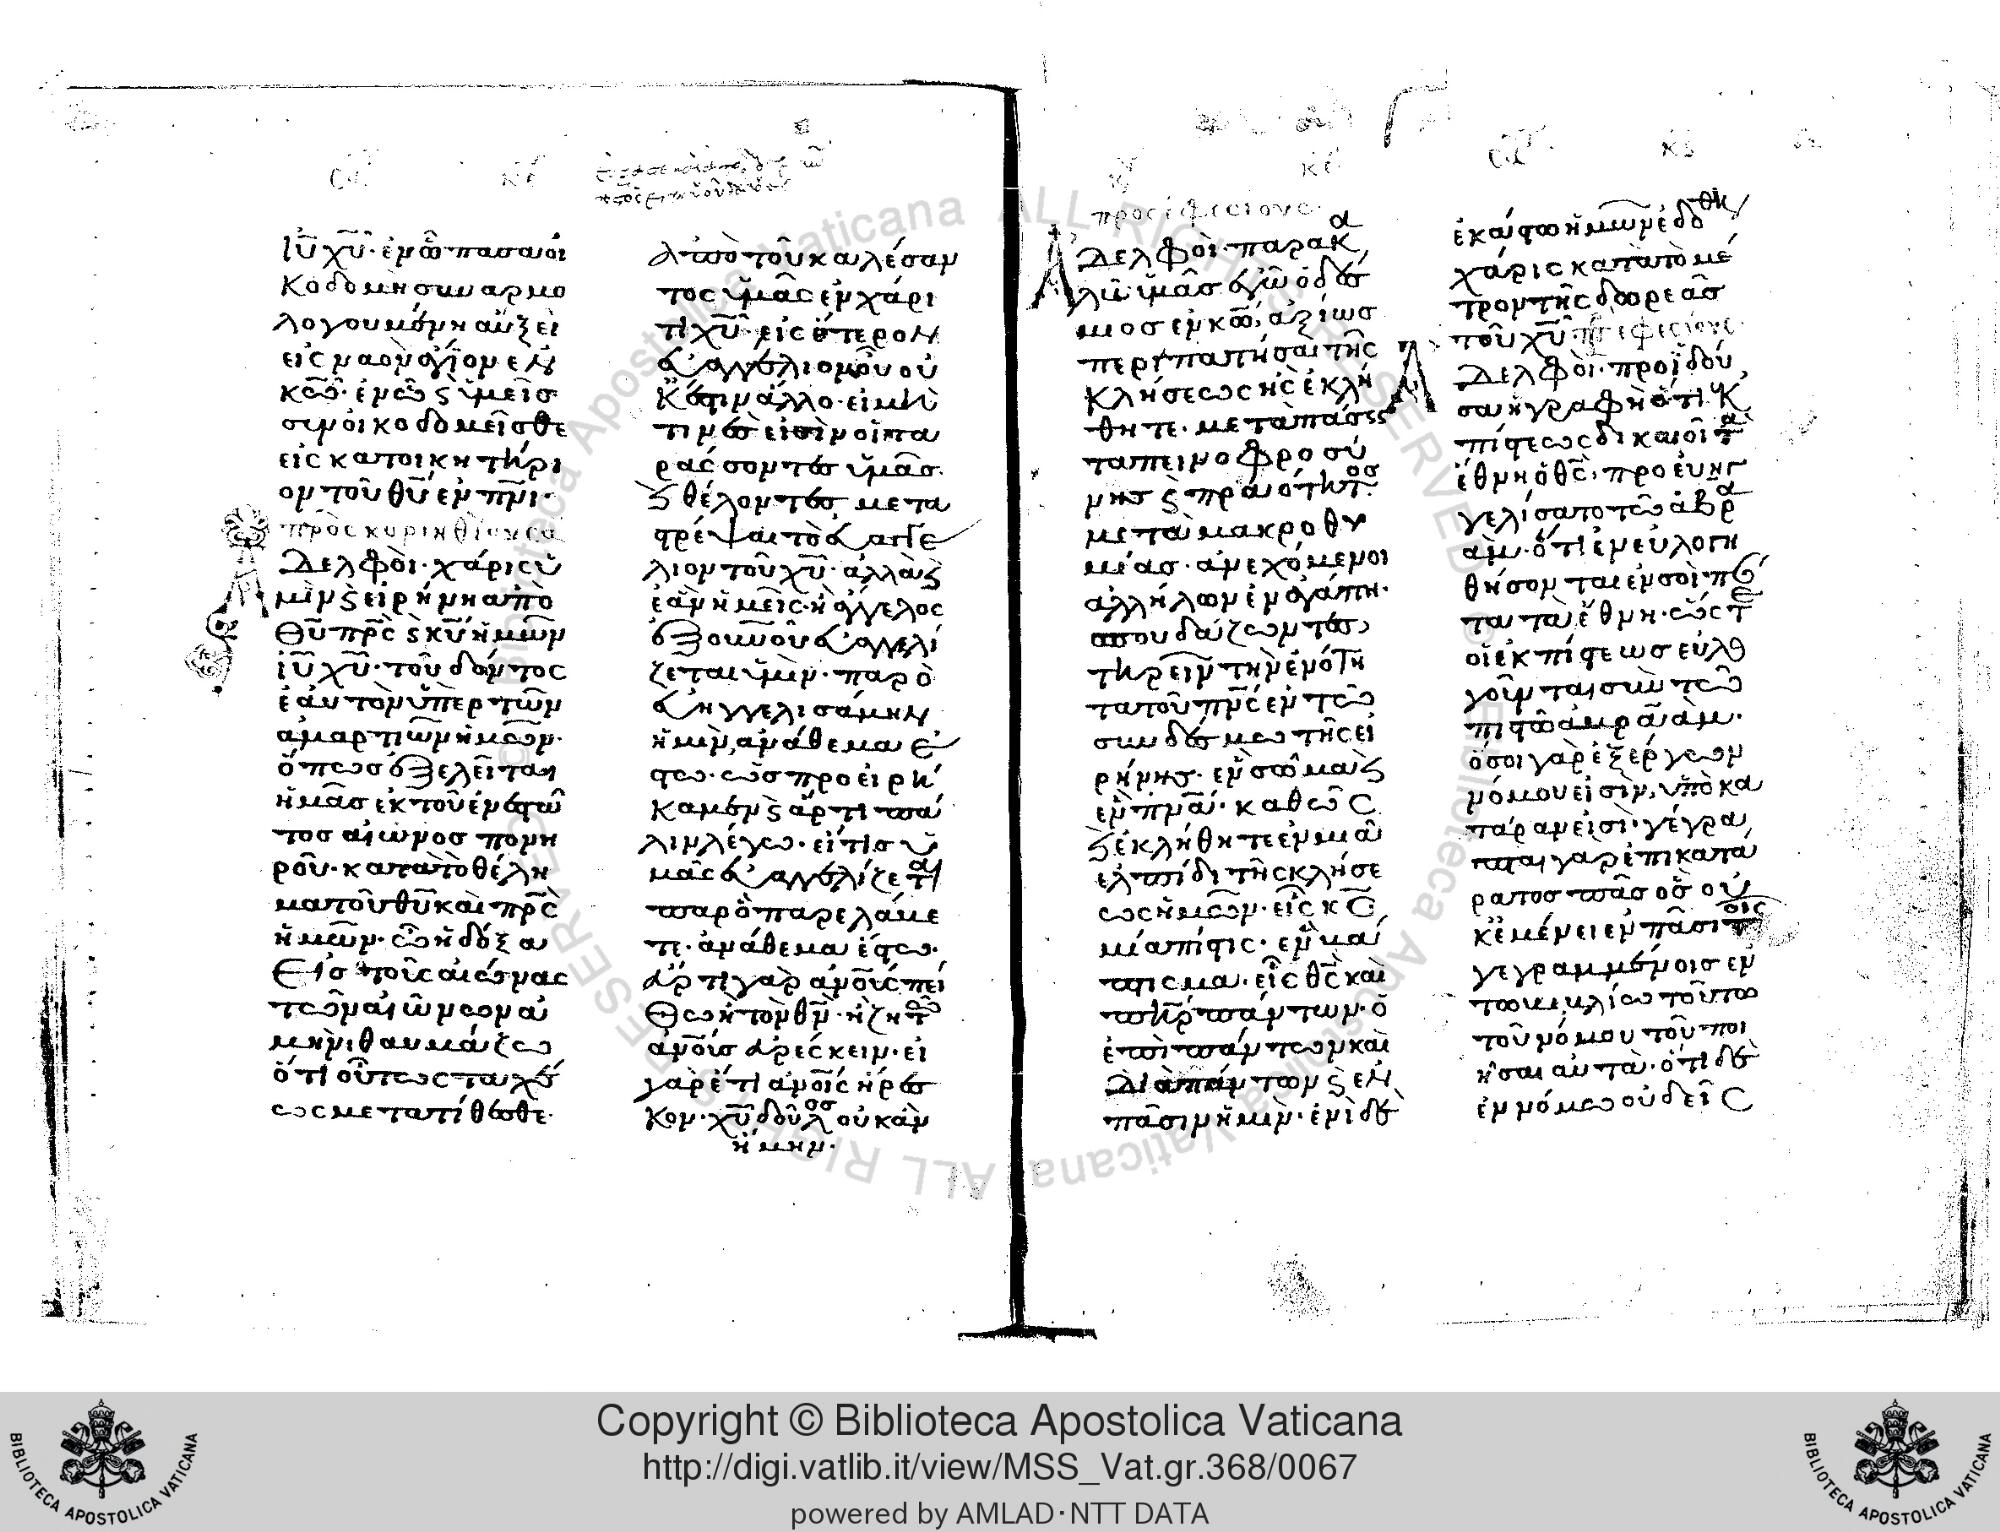 ἰυ χυ· ἐν ὧ πᾶσα οἰ
κοδομὴ συναρμο
λογουμένη αὔξει
εἰς ναὸν ἅγιον ἐν
κω· ἐν ὧ ϗ ὑμεῖς
συνοικοδομεῖσθε
εἰς κατοικητήρι
ον τοῦ θυ ἐν πνι·
πρὸς κορινθίους
Ἀδελφοὶ· χάρις ὑ
μῖν ϗ εἰρήνη ἀπὸ
θυ πρς ϗ κυ ἡμῶν
ἰυ χυ· τοῦ δόντος
ἑαυτὸν ὑπὲρ τῶν
ἁμαρτιῶν ἡμῶν·
ὅπως ἐξελεῖται
ἡμᾶς ἐκ τοῦ ἐνεστῶ
τος αἰῶνος πονη
ροῦ· κατὰ τὸ θέλη
μα τοῦ θυ καὶ πρς
ἡμῶν· ὧ ἡ δόξα
εἰς τοὺς αἰῶνας
τῶν αἰώνων ἀ
μήν· θαυμάζω
ὅτι οὕτως ταχέ
ως μετατίθεσθε·
ἀπὸ τοῦ καλέσαν
τος ὑμᾶς ἐν χάρι
τι χυ· εἰς ἕτερον
εὐαγγέλιον ὃ οὐ
κ ἔστιν ἄλλο· εἰ μὴ
τινές εἰσιν οἱ τα
ράσσοντες ὑμᾶς·
ϗ θέλοντες μετα
στρέψαι τὸ εὐαγγέ
λιον τοῦ χυ· ἀλλὰ ϗ
ἐὰν ἡμεῖς· ἢ ἄγγελος
ἐξ οὐνοῦ εὐαγγελί
ζεται ὑμῖν· παρ ὃ
εὐηγγελισάμην
ἡμῖν, ἀνάθεμα ἔ
στω· ὡς προειρή
καμεν ϗ ἄρτι πά
λιν λέγω· εἴ τις ὑ
μᾶς εὐαγγελίζεται
παρ ὃ παρελάβε
τε· ἀνάθεμα ἔστω·
ἄρτι γὰρ ἀνοῖς πεί
θω ἢ τὸν θν· ἢ ζητῶ
ἀνοῖς ἀρέσκειν· εἰ
γὰρ ἔτι ἀνοῖς ἤρες
κον· χυ δοῦλος οὐκ ἂν
ἤμην·
πρὸς ἐφεσίους
Ἀδελφοὶ· παρακα
λῶ ὑμᾶς ἐγὼ ὁ δέσ
μιος ἐν κω, ἀξίως
περιπατῆσαι τῆς
κλήσεως ἧς ἐκλή
θητε· μετὰ πάσης
ταπεινοφροσύ
νης ϗ πραότητος
μετὰ μακροθυ
μίας· ἀνεχόμενοι
ἀλλήλων ἐν ἀγάπη·
σπουδάζοντες
τηρεῖν τὴν ἑνότη
τα τοῦ πνς ἐν τῶ
συνδέσμω τῆς εἰ
ρήνης· ἓν σῶμα ϗ
ἓν πνα· καθὼς
ϗ ἐκλήθητε ἐν μιᾶ
ἐλπίδι τῆς κλήσε
ως ἡμῶν· εἷς κς
μία πίστις· ἓν βά
πτισμα· εἷς θς καὶ
πηρ πάντων· ὁ
ἐπὶ πάντων καὶ
διὰ πάντων ϗ ἐν
πᾶσιν ἡμῖν· ἑνὶ δὲ
ἑκάστω ἡμῶν ἐδόθη
χάρις κατὰ τὸ μέ
τρον τῆς δωρεᾶς
τοῦ χυ· πρ ἐφεσίους
Ἀδελφοὶ· προϊδοῦ
σα ἡ γραφὴ ὅτι ἐκ
πίστεως δικαιοῖ τὰ
ἔθνη ὁ θς· προευηγ
γελίσατο τῶ ἀβρα
ὰμ· ὅτι ἐνευλογη
θήσονται ἐν σοὶ πάν
τα τὰ ἔθνη· ὥστε
οἱ ἐκ πίστεως εὐλο
γοῦνται σὺν τῶ
πιστῶ ἀβραὰμ·
ὅσοι γὰρ ἐξ ἔργων
νόμου εἰσὶν, ὑπὸ κα
τάραν εἰσὶ· γέγρα
πται γὰρ ἐπικατά
ρατος πᾶς ὃς οὐ
κ ἐμμένει ἐν πᾶσι τοῖς
γεγραμμένοις ἐν
τῶ βιβλίω τούτω
τοῦ νόμου τοῦ ποι
ῆσαι αὐτὰ· ὅτι δὲ
ἐν νόμω οὐδεὶς
Copyright © Biblioteca Apostolica Vaticana
http://digi.vatlib.it/view/MSS_Vat.gr.368/0067
powered by AMLAD·NTT DATA
BIBLIOTECA APOSTOLICA VATICANA
BIBLIOTECA APOSTOLICA VATICANA